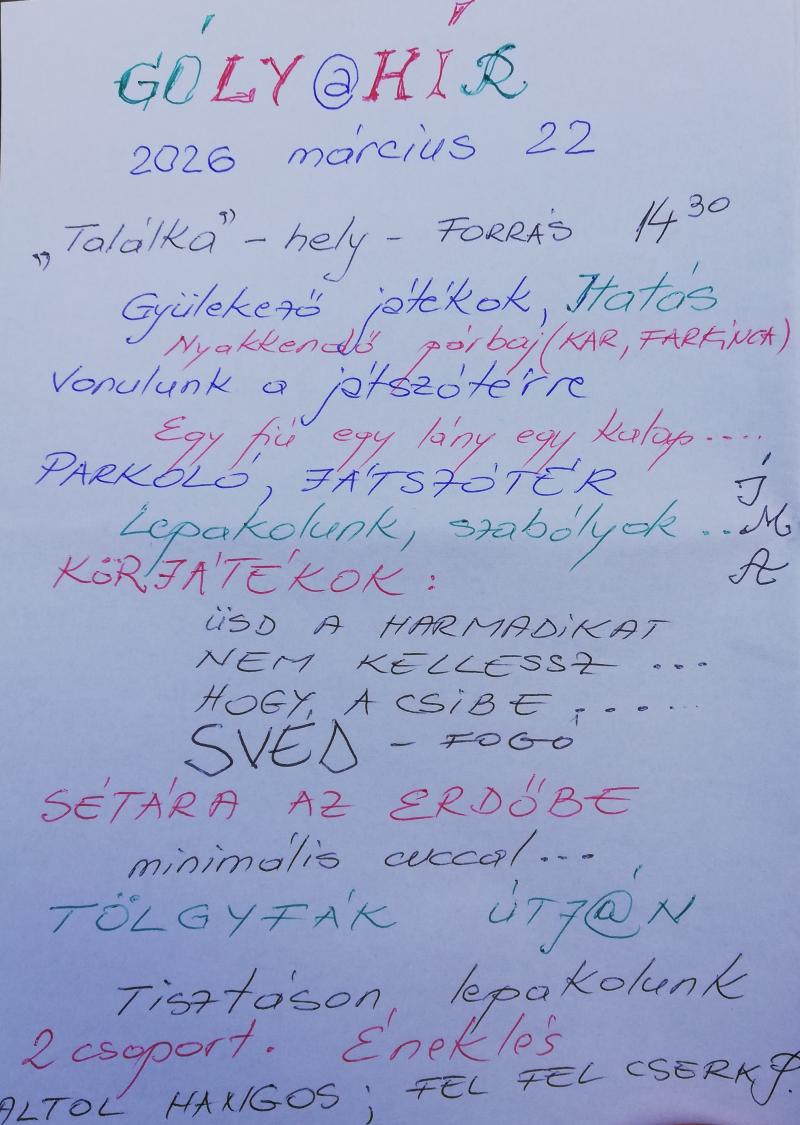 GÓLY@HÍR
2026 március 22
„Találka” - hely - FORRÁS 14³⁰
Gyülekező játékok, Itatás
Nyakkendő párbaj (KAR, FARKINCA)
Vonulunk a játszótérre
Egy fiú egy lány egy kalap....
PARKOLÓ, JÁTSZÓTÉR
Lepakolunk, szabályok ..
IMA
KÖRJÁTÉKOK:
ÜSD A HARMADIKAT
NEM KELLESSZ ...
HOGY, A CSIBE,.....
SVÉD - FOGÓ
SÉTÁRA AZ ERDŐBE
minimális cuccal...
TÖLGYFÁK ÚTJ@N
Tisztáson, lepakolunk
2 csoport. Éneklés
ALTOL HANGOS; FEL FEL